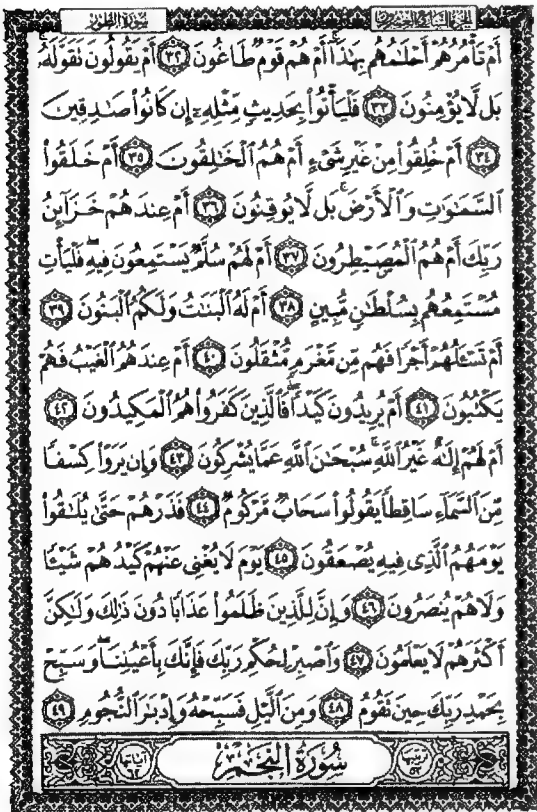 الجزء السابع والعشرون سورة الطور
أَمْ تَأْمُرُهُمْ أَحْلَـٰمُهُم بِهَـٰذَآ ۚ أَمْ هُمْ قَوْمٌ طَاغُونَ ٣٢ أَمْ يَقُولُونَ تَقَوَّلَهُۥ
بَل لَّا يُؤْمِنُونَ ٣٣ فَلْيَأْتُوا۟ بِحَدِيثٍ مِّثْلِهِۦٓ إِن كَانُوا۟ صَـٰدِقِينَ
٣٤ أَمْ خُلِقُوا۟ مِنْ غَيْرِ شَىْءٍ أَمْ هُمُ ٱلْخَـٰلِقُونَ ٣٥ أَمْ خَلَقُوا۟
ٱلسَّمَـٰوَٰتِ وَٱلْأَرْضَ ۚ بَل لَّا يُوقِنُونَ ٣٦ أَمْ عِندَهُمْ خَزَآئِنُ
رَبِّكَ أَمْ هُمُ ٱلْمُصَۜيْطِرُونَ ٣٧ أَمْ لَهُمْ سُلَّمٌ يَسْتَمِعُونَ فِيهِ ۖ فَلْيَأْتِ
مُسْتَمِعُهُم بِسُلْطَـٰنٍ مُّبِينٍ ٣٨ أَمْ لَهُ ٱلْبَنَـٰتُ وَلَكُمُ ٱلْبَنُونَ ٣٩
أَمْ تَسْـَٔلُهُمْ أَجْرًا فَهُم مِّن مَّغْرَمٍ مُّثْقَلُونَ ٤٠ أَمْ عِندَهُمُ ٱلْغَيْبُ فَهُمْ
يَكْتُبُونَ ٤١ أَمْ يُرِيدُونَ كَيْدًا ۖ فَٱلَّذِينَ كَفَرُوا۟ هُمُ ٱلْمَكِيدُونَ ٤٢
أَمْ لَهُمْ إِلَـٰهٌ غَيْرُ ٱللَّهِ ۚ سُبْحَـٰنَ ٱللَّهِ عَمَّا يُشْرِكُونَ ٤٣ وَإِن يَرَوْا۟ كِسْفًا
مِّنَ ٱلسَّمَآءِ سَاقِطًا يَقُولُوا۟ سَحَابٌ مَّرْكُومٌ ٤٤ فَذَرْهُمْ حَتَّىٰ يُلَـٰقُوا۟
يَوْمَهُمُ ٱلَّذِى فِيهِ يُصْعَقُونَ ٤٥ يَوْمَ لَا يُغْنِى عَنْهُمْ كَيْدُهُمْ شَيْـًٔا
وَلَا هُمْ يُنصَرُونَ ٤٦ وَإِنَّ لِلَّذِينَ ظَلَمُوا۟ عَذَابًا دُونَ ذَٰلِكَ وَلَـٰكِنَّ
أَكْثَرَهُمْ لَا يَعْلَمُونَ ٤٧ وَٱصْبِرْ لِحُكْمِ رَبِّكَ فَإِنَّكَ بِأَعْيُنِنَا ۖ وَسَبِّحْ
بِحَمْدِ رَبِّكَ حِينَ تَقُومُ ٤٨ وَمِنَ ٱلَّيْلِ فَسَبِّحْهُ وَإِدْبَـٰرَ ٱلنُّجُومِ ٤٩
ترتيبها ٥٣ سُورَةُ النَّجْمِ آياتها ٦٢